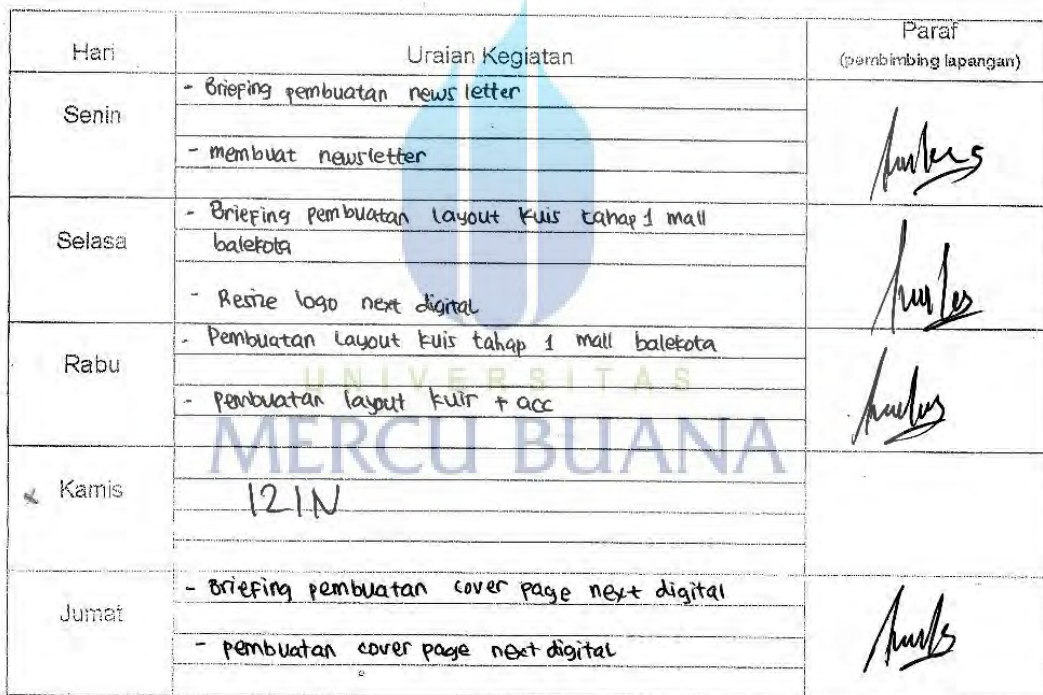 Hari Uraian Kegiatan Paraf
(pembimbing lapangan)
Senin
- Briefing pembuatan news letter
- membuat newsletter
Selasa
- Briefing pembuatan layout kuis tahap 1 mall
balekota
- Resize logo next digital
Rabu
- Pembuatan layout kuis tahap 1 mall balekota
- pembuatan layout kuis + acc
UNIVERSITAS
MERCU BUANA
Kamis
IZIN
Jumat
- Briefing pembuatan cover page next digital
- pembuatan cover page next digital